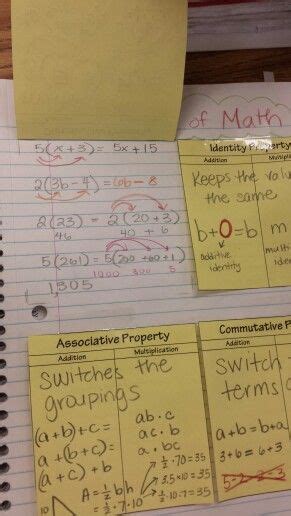 of Math
5(x+3) = 5x + 15
2(3b-4) = 6b - 8
2(23) = 2(20+3)
46 40 + 6
5(261) = 5(200+60+1)
1000 300 5
1,305
Identity Property
Addition
Keeps the
the same
b+0=b m
additive
identity
Associative Property
Addition Multiplication
Switches the
groupings
(a+b)+c=
a+(b+c)=
(a+c)+b
ab·c
ac·b
a·bc
A=½bh
=½·7·10
½·70=35
3.5×10=35
½·10·7=35
10
Commutative
Addition
Switch
terms
a+b=b+a
3+6=6+3